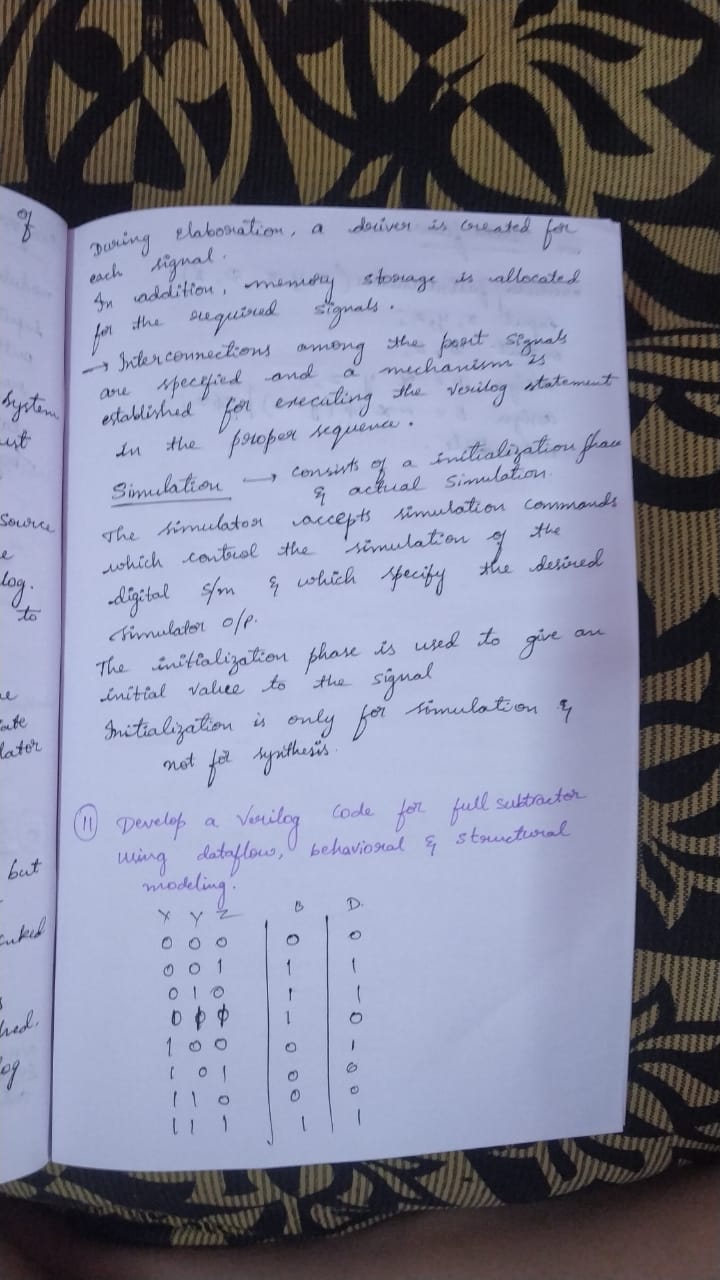 of
System
ust
Source
e
log.
to
ate
lator
but
hed.
og
During elaboration, a driver is created for
each signal.
In addition, memory storage is allocated
for the required signals.
→ Interconnections among the port signals
are specified and a mechanism is
established for executing the Verilog statement
in the proper sequence.
Simulation → consists of a initialization phase
& actual simulation.
The simulator accepts simulation commands
which control the simulation of the
digital s/m & which specify the desired
simulator o/p.
The initialization phase is used to give an
initial value to the signal
Initialization is only for simulation &
not for synthesis.
11 Develop a Verilog code for full subtractor
using dataflow, behavioral & structural
modeling.
X Y Z B D.
0 0 0 0 0
0 0 1 1 1
0 1 0 1 1
0 1 1 1 0
1 0 0 0 1
1 0 1 0 0
1 1 0 0 0
1 1 1 1 1